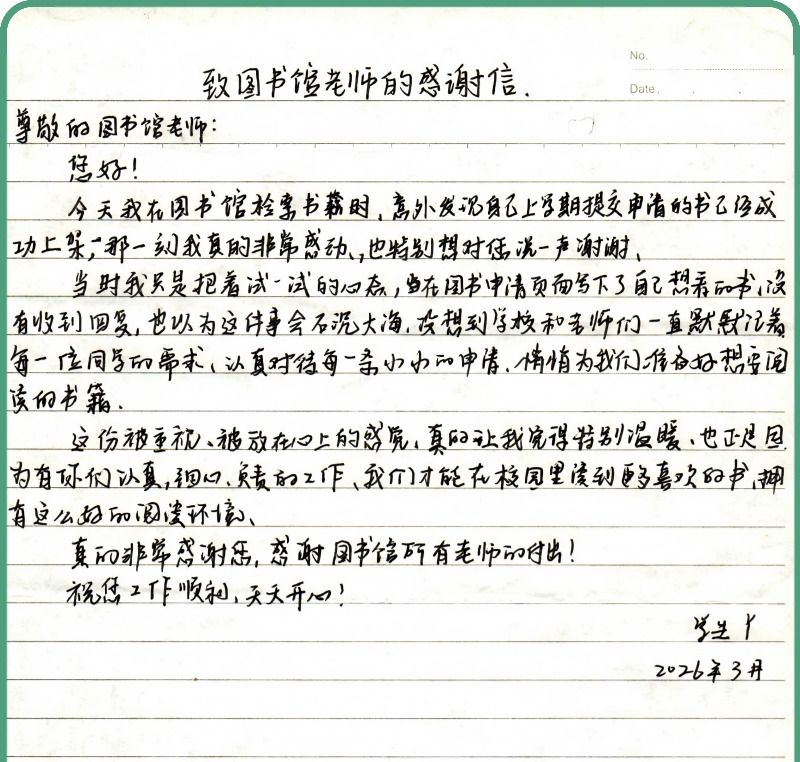 No.
Date.
致图书馆老师的感谢信.
尊敬的图书馆老师:
您好!
今天我在图书馆检索书籍时,意外发现自己上学期提交申请的书已经成
功上架,那一刻我真的非常感动、也特别想对您说一声谢谢、
当时我只是抱着试一试的心态,在图书申请页面写下了自己想看的书,没
有收到回复,也以为这件事会石沉大海,没想到学校和老师们一直默默记着
每一位同学的需求、认真对待每一条小小的申请、悄悄为我们准备好想要阅
读的书籍.
这份被重视、被放在心上的感觉,真的让我觉得特别温暖、也正是因
为有你们认真,细心、负责的工作、我们才能在校园里读到更多喜欢的书,拥
有这么好的阅读环境、
真的非常感谢您,感谢图书馆所有老师的付出!
祝您工作顺利、天天开心!
学生
2026年3月